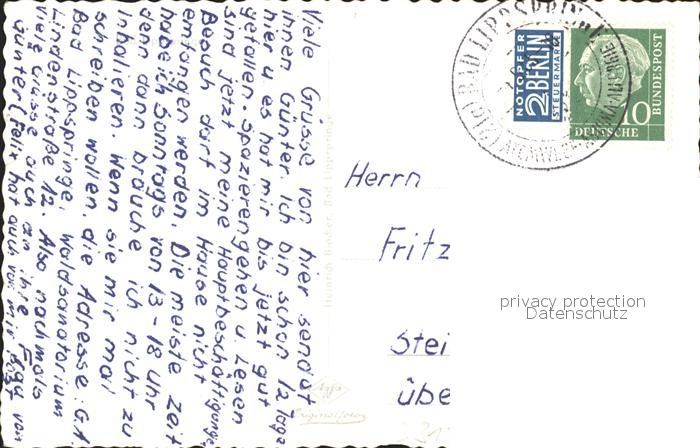 Viele Grüsse von hier sendet
ihnen Günter. Ich bin schon 12 Tage
hier u es hat mir bis jetzt gut
gefallen. Spazierengehen u. Lesen
sind jetzt meine Hauptbeschäftigung,
Besuch darf im Hause nicht
emfangen werden. Die meiste Zeit
habe ich Sonntags von 13-18 Uhr
denn dann brauche ich nicht zu
inhalieren. Wenn sie mir mal
schreiben wollen, die Adresse: G.A.
Bad Lippspringe, Waldsanatorium
Lindenstraße 12. Also nochmals
viele Grüsse auch an ihre Frau von
Günter (Felix hat auch von mir
Heinrich Büscher, Bad Lippspringe
Agfa
Originalfoto
BAD LIPPSPRINGE
NOTOPFER
2 BERLIN
STEUERMARKE
10
DEUTSCHE
BUNDESPOST
Herrn
Fritz
Stei
übe
privacy protection
Datenschutz